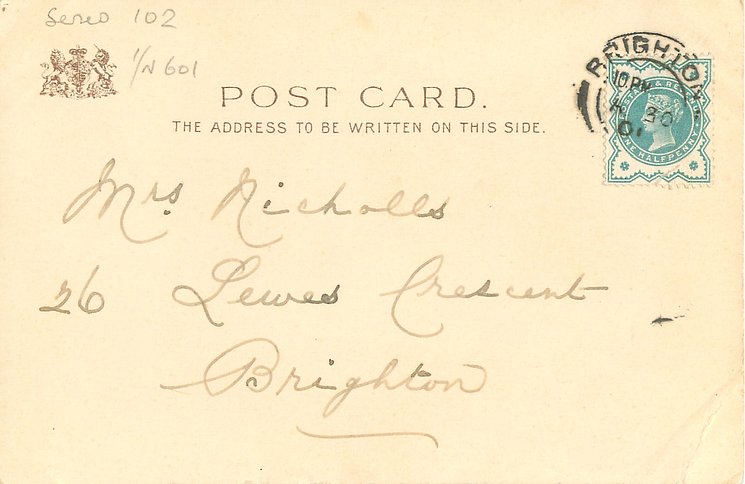 Series 102
1/N 601
POST CARD.
THE ADDRESS TO BE WRITTEN ON THIS SIDE.
BRIGHTON
10 PM
30
01
ONE HALFPENNY
Mrs Nicholls
26 Lewes Crescent
Brighton